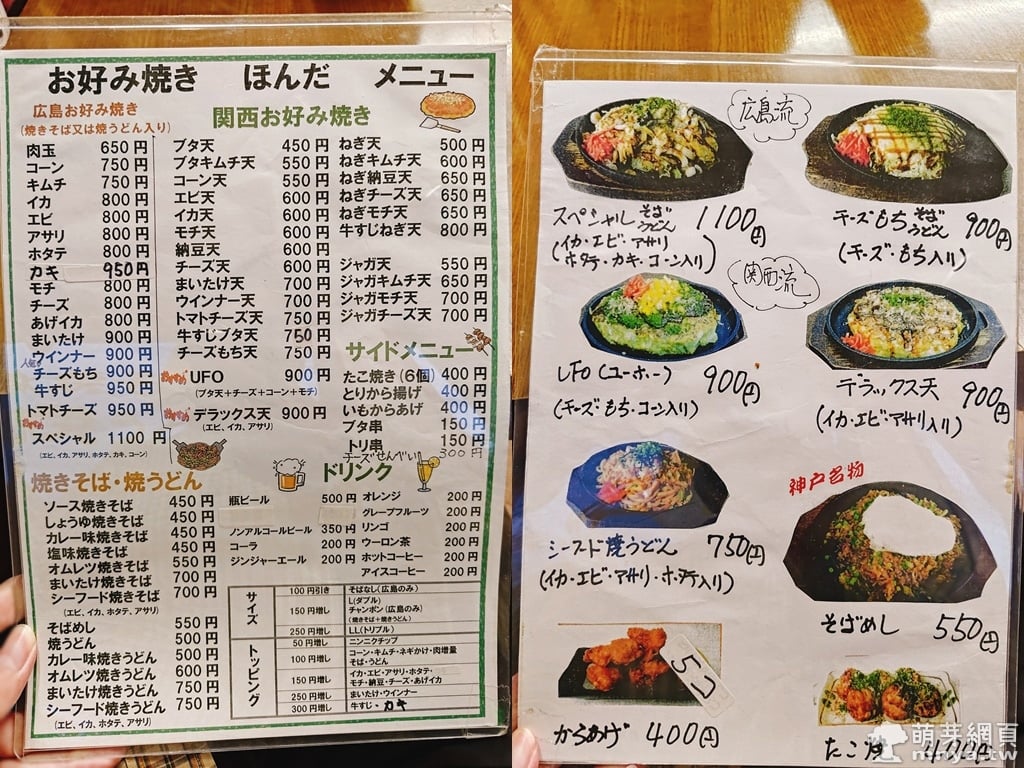 お好み焼き ほんだ メニュー
広島お好み焼き
(焼きそば又は焼うどん入り)
肉玉 650円
コーン 750円
キムチ 750円
イカ 800円
エビ 800円
アサリ 800円
ホタテ 800円
カキ 950円
モチ 800円
チーズ 800円
あげイカ 800円
まいたけ 900円
ウインナー 900円
人気
チーズもち 900円
牛すじ 950円
トマトチーズ 950円
おすすめ
スペシャル 1100円
(エビ、イカ、アサリ、ホタテ、カキ、コーン)
関西お好み焼き
ブタ天 450円
ブタキムチ天 550円
コーン天 550円
エビ天 600円
イカ天 600円
モチ天 600円
納豆天 600円
チーズ天 600円
まいたけ天 700円
ウインナー天 700円
トマトチーズ天 750円
牛すじブタ天 750円
チーズもち天 750円
おすすめ UFO 900円
(ブタ天+チーズ+コーン+モチ)
おすすめ デラックス天 900円
(エビ、イカ、アサリ)
ねぎ天 500円
ねぎキムチ天 600円
ねぎ納豆天 650円
ねぎチーズ天 650円
ねぎモチ天 650円
牛すじねぎ天 800円
ジャガ天 550円
ジャガキムチ天 650円
ジャガモチ天 700円
ジャガチーズ天 700円
サイドメニュー
たこ焼き(6個) 400円
とりから揚げ 400円
いもからあげ 400円
ブタ串 150円
トリ串 150円
チーズせんべい 300円
焼きそば・焼うどん
ソース焼きそば 450円
しょうゆ焼きそば 450円
カレー味焼きそば 450円
塩味焼きそば 450円
オムレツ焼きそば 550円
まいたけ焼きそば 700円
シーフード焼きそば 700円
(エビ、イカ、ホタテ、アサリ)
そばめし 550円
焼うどん 500円
カレー味焼うどん 500円
オムレツ焼うどん 600円
まいたけ焼うどん 750円
シーフード焼うどん 750円
(エビ、イカ、ホタテ、アサリ)
ドリンク
瓶ビール 500円
ノンアルコールビール 350円
コーラ 200円
ジンジャーエール 200円
オレンジ 200円
グレープフルーツ 200円
リンゴ 200円
ウーロン茶 200円
ホットコーヒー 200円
アイスコーヒー 200円
サイズ
100円引き そばなし(広島のみ)
150円増し L(ダブル)
チャンポン(広島のみ)
(焼きそば+焼きうどん)
250円増し LL(トリプル)
トッピング
50円増し ニンニクチップ
100円増し コーン・キムチ・ネギかけ・肉増量
そば・うどん
150円増し イカ・エビ・アサリ・ホタテ・
モチ・納豆・チーズ・あげイカ
250円増し まいたけ・ウインナー
300円増し 牛すじ・カキ
広島流
スペシャル そば うどん 1100円
(イカ・エビ・アサリ
ホタテ・カキ・コーン入り)
チーズもち そば うどん 900円
(チーズ・もち入り)
関西流
UFO(ユーホー) 900円
(チーズ・もち・コーン入り)
デラックス天 900円
(イカ・エビ・アサリ入り)
シーフード焼うどん 750円
(イカ・エビ・アサリ・ホタテ入り)
神戸名物
そばめし 550円
5コ
からあげ 400円
たこ焼 400円
萌芽網頁
mnya.tw